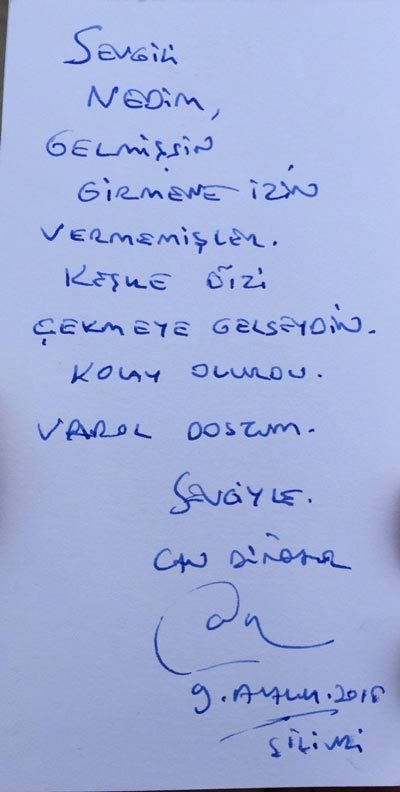 SEVGİLİ
NEDİM,
GELMİŞSİN
GİRMENE İZİN
VERMEMİŞLER.
KEŞKE DİZİ
ÇEKMEYE GELSEYDİN.
KOLAY OLURDU.
VAROL DOSTUM.
SEVGİYLE.
CAN DÜNDAR
Can
9.ARALIK.2015
SİLİVRİ